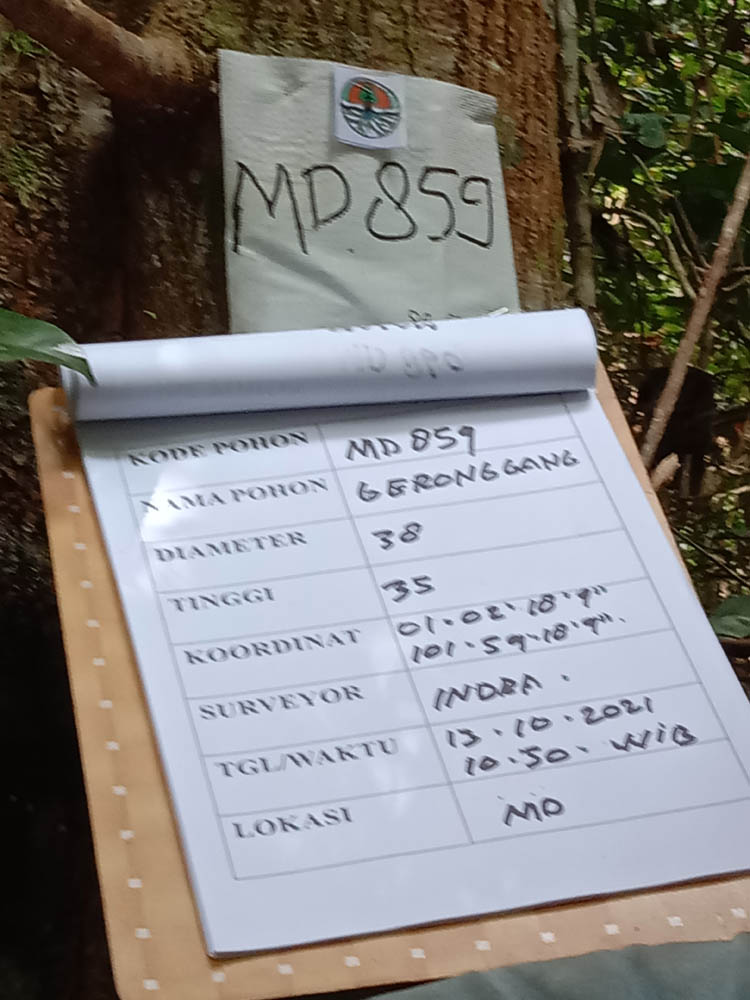 MD 859
KODE POHON MD 859
NAMA POHON GERONGGANG
DIAMETER 38
TINGGI 35
KOORDINAT 01.02.18.9"
101.59.18.9".
SURVEYOR INDRA.
TGL/WAKTU 13.10.2021
10.50. WIB
LOKASI MD